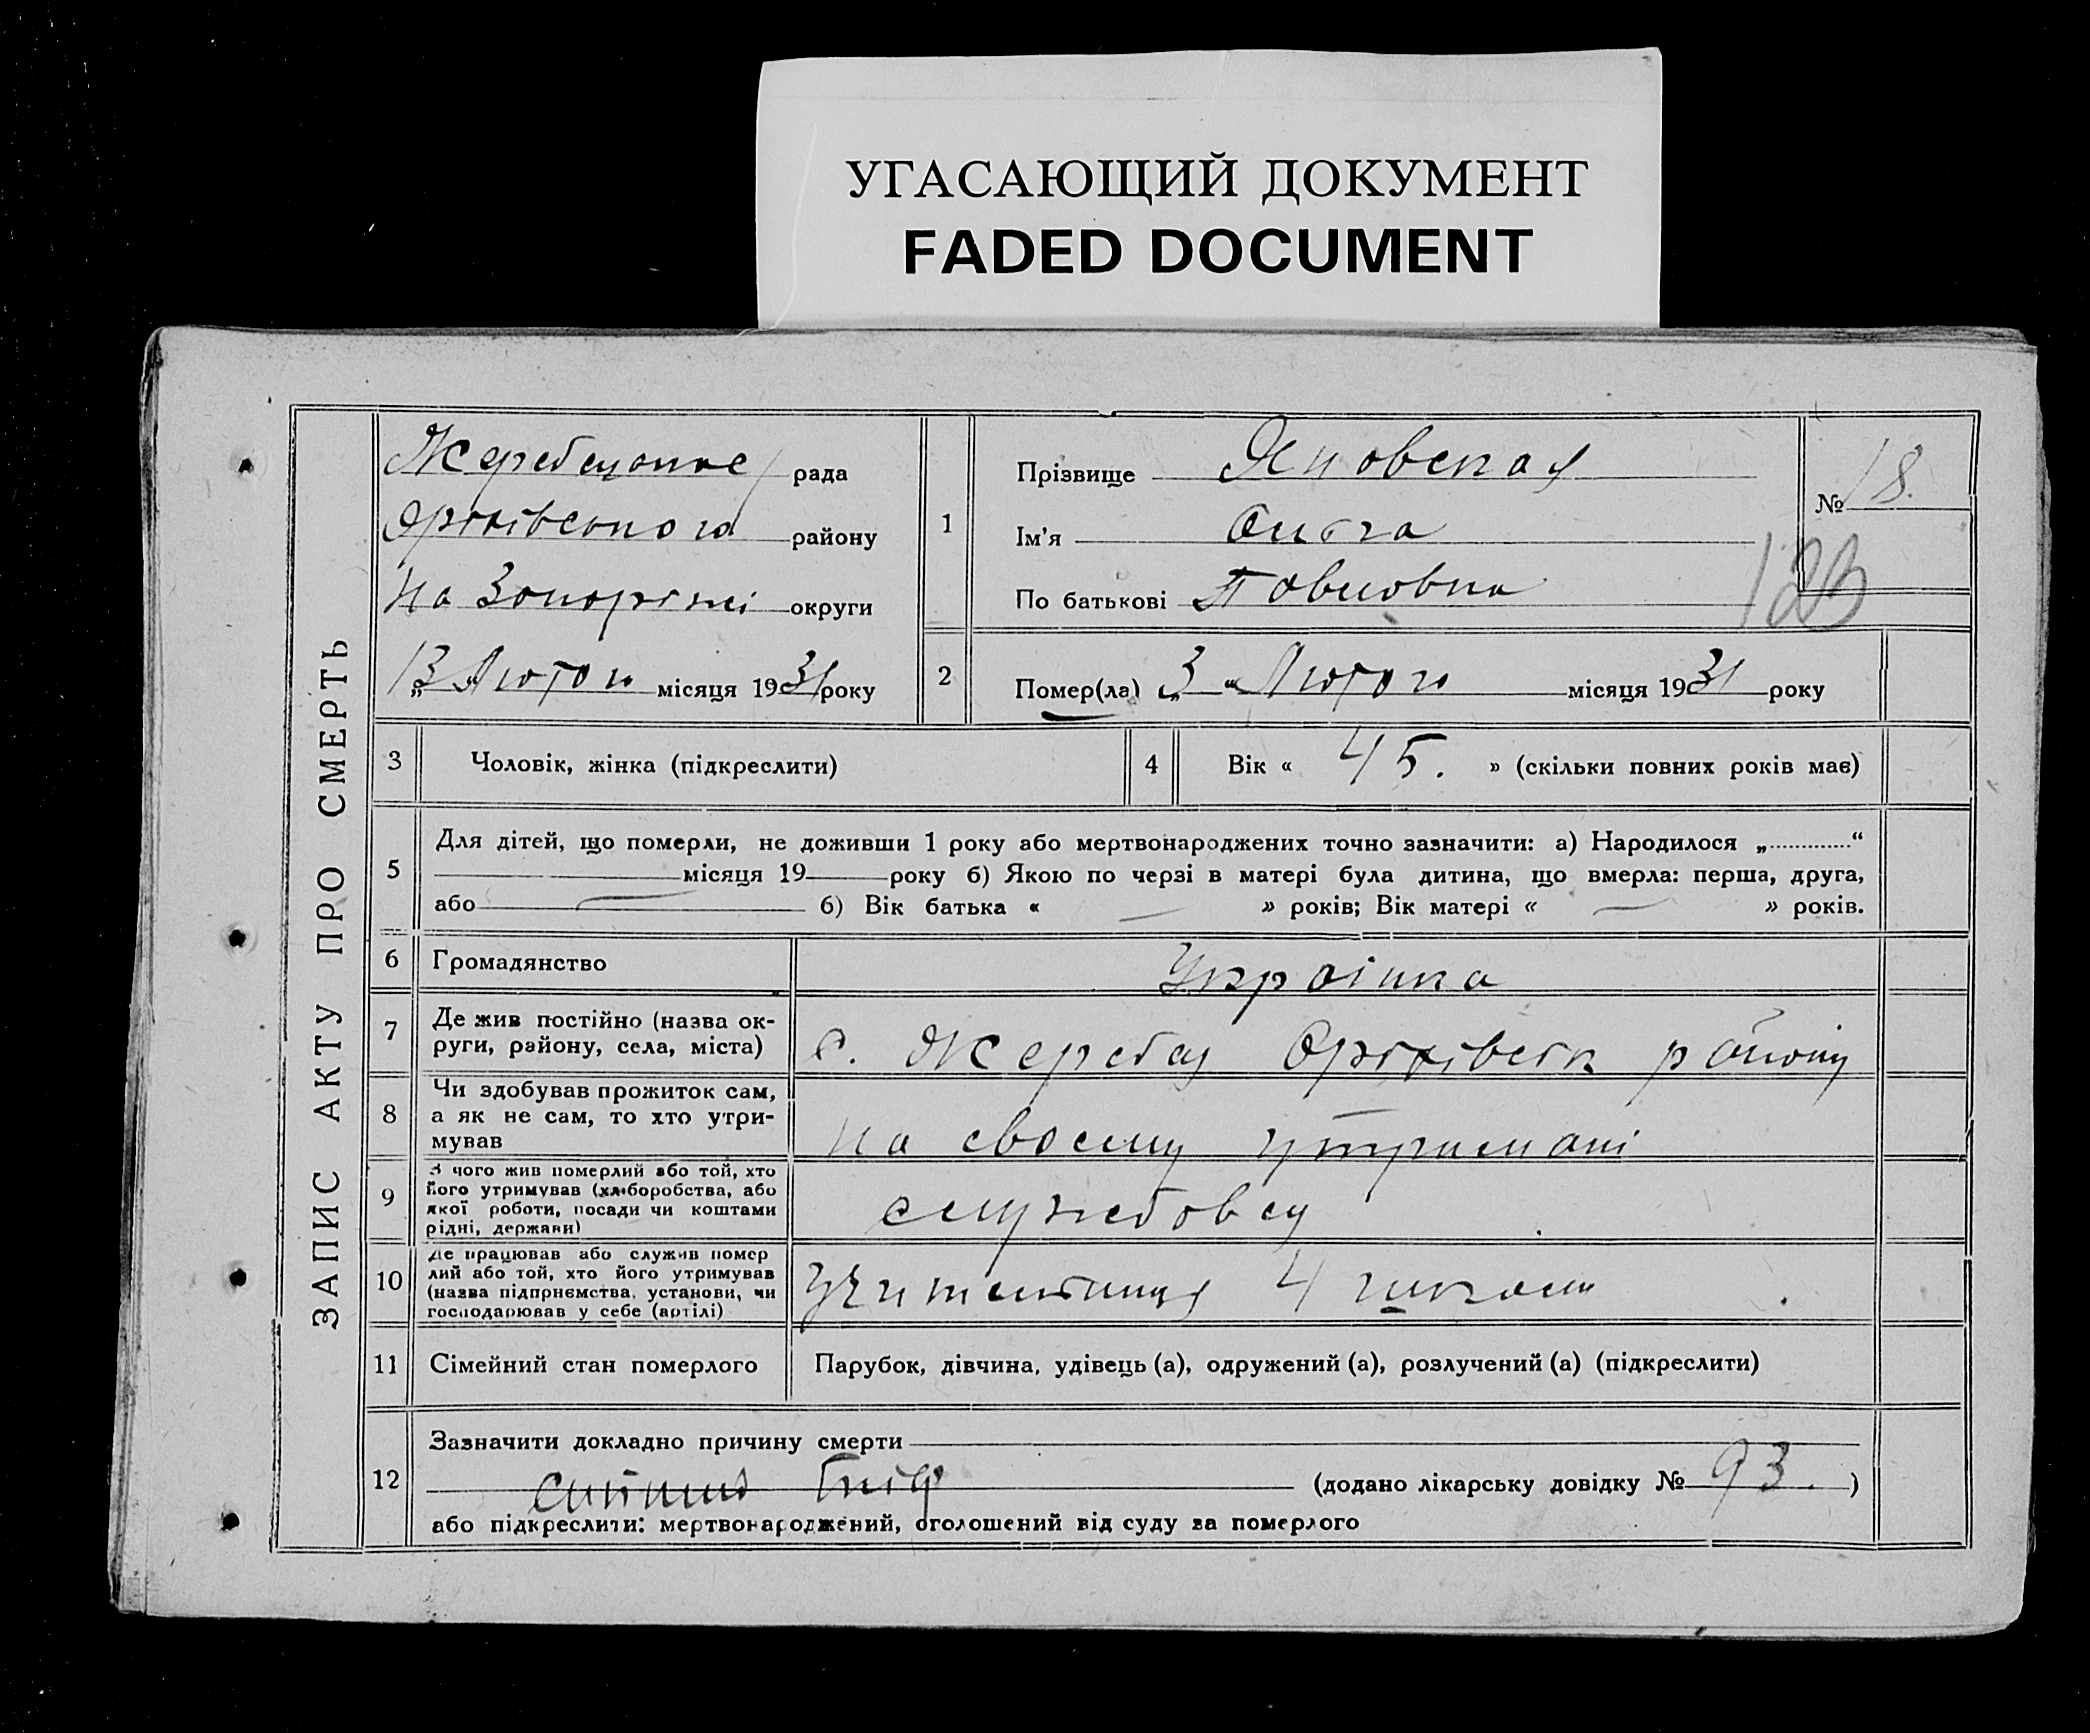 УГАСАЮЩИЙ ДОКУМЕНТ
FADED DOCUMENT
ЗАПИС АКТУ ПРО СМЕРТЬ
Жеребецьке рада
Оріхівського району
На Запоріжі округи
13 Лютого місяця 1931 року
1
Прізвище Яновская
Ім'я Ольга
По батькові Павловна
№ 18.
123
2
Помер(ла) „3“ Лютого місяця 1931 року
3 Чоловік, жінка (підкреслити)
4 Вік « 45. » (скільки повних років має)
5
Для дітей, що померли, не доживши 1 року або мертвонароджених точно зазначити: а) Народилося „.............“
місяця 19 року б) Якою по черзі в матері була дитина, що вмерла: перша, друга,
або — б) Вік батька « — » років; Вік матері « — » років.
6 Громадянство Українка
7 Де жив постійно (назва ок-
руги, району, села, міста) с. Жеребец Оріхівськ району
8 Чи здобував прожиток сам,
а як не сам, то хто утри-
мував на своему утримані
9 З чого жив померлий або той, хто
його утримував (хліборобства, або
якої роботи, посади чи коштами
рідні, держави) служебовец
10 Де працював або служив помер
лий або той, хто його утримував
(назва підприємства, установи, чи
господарював у себе (артілі) учительница 4
11 Сімейний стан померлого Парубок, дівчина, удівець (а), одружений (а), розлучений (а) (підкреслити)
12
Зазначити докладно причину смерти
(додано лікарську довідку № 93. )
або підкреслити: мертвонароджений, оголошений від суду за померлого